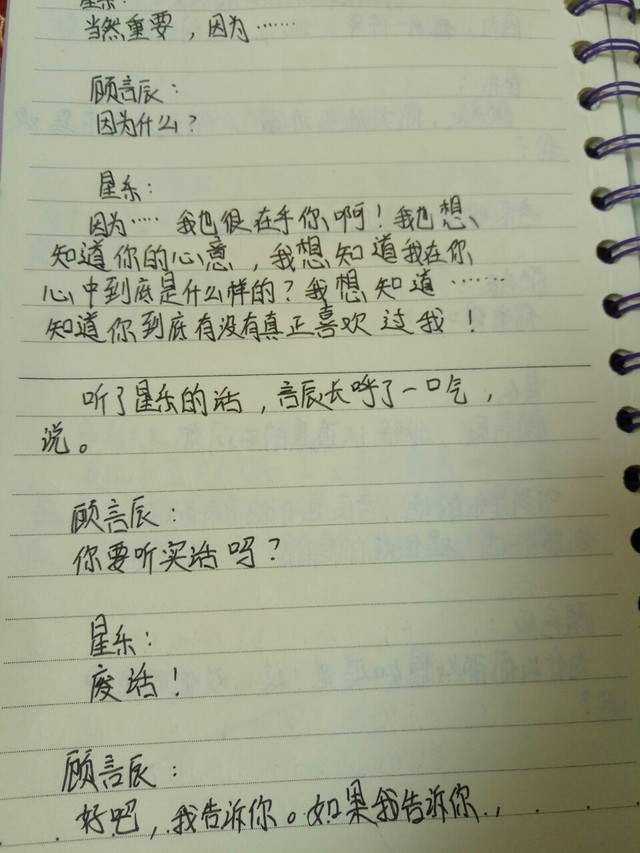 星乐：
当然重要，因为……
顾言辰：
因为什么？
星乐：
因为…… 我也很在乎你啊！我也想
知道你的心意，我想知道我在你
心中到底是什么样的？我想知道……
知道你到底有没有真正喜欢过我！
听了星乐的话，言辰长呼了一口气，
说。
顾言辰：
你要听实话吗？
星乐：
废话！
顾言辰：
好吧，我告诉你。如果我告诉你，